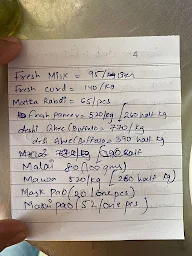 4
Fresh Milk = 95/
Fresh curd = 140/kg
Matka Rabdi = 65/pcs
Fresh Paneer = 520/kg / 260 half kg
deshi Ghee (Buffalo) = 770/kg
deshi Ghee (Buffalo) = 390 half kg
/kg / 290 half
Malai 80/100 gms
Mawa 520/kg / (260 half kg)
Mask Pao (20/one pcs)
Maska Pao (52/one pcs)